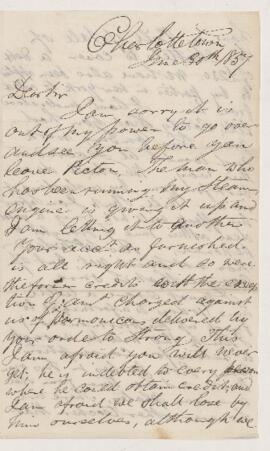 Charlottetown
June 30th 1857
Dear Sir
I am sorry it is
out of my power to go over
and see you before you
leave Pictou, The man who
has been running my Steam
engine is giving it up and
I am letting it to another
Your acct as furnished
is all right and so were
the former credits with the
tion of amt charged against
us of delivered by
your order to Strong This
I am afraid you will never
get; he is indebted to every person
where he could obtain credit, and
I am afraid we shall lose by
him ourselves, although we